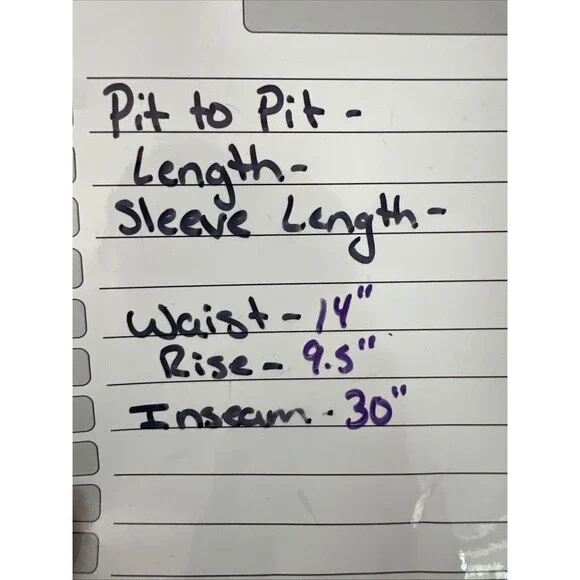 Pit to Pit -
Length -
Sleeve Length -
Waist - 14"
Rise - 9.5"
Inseam - 30"